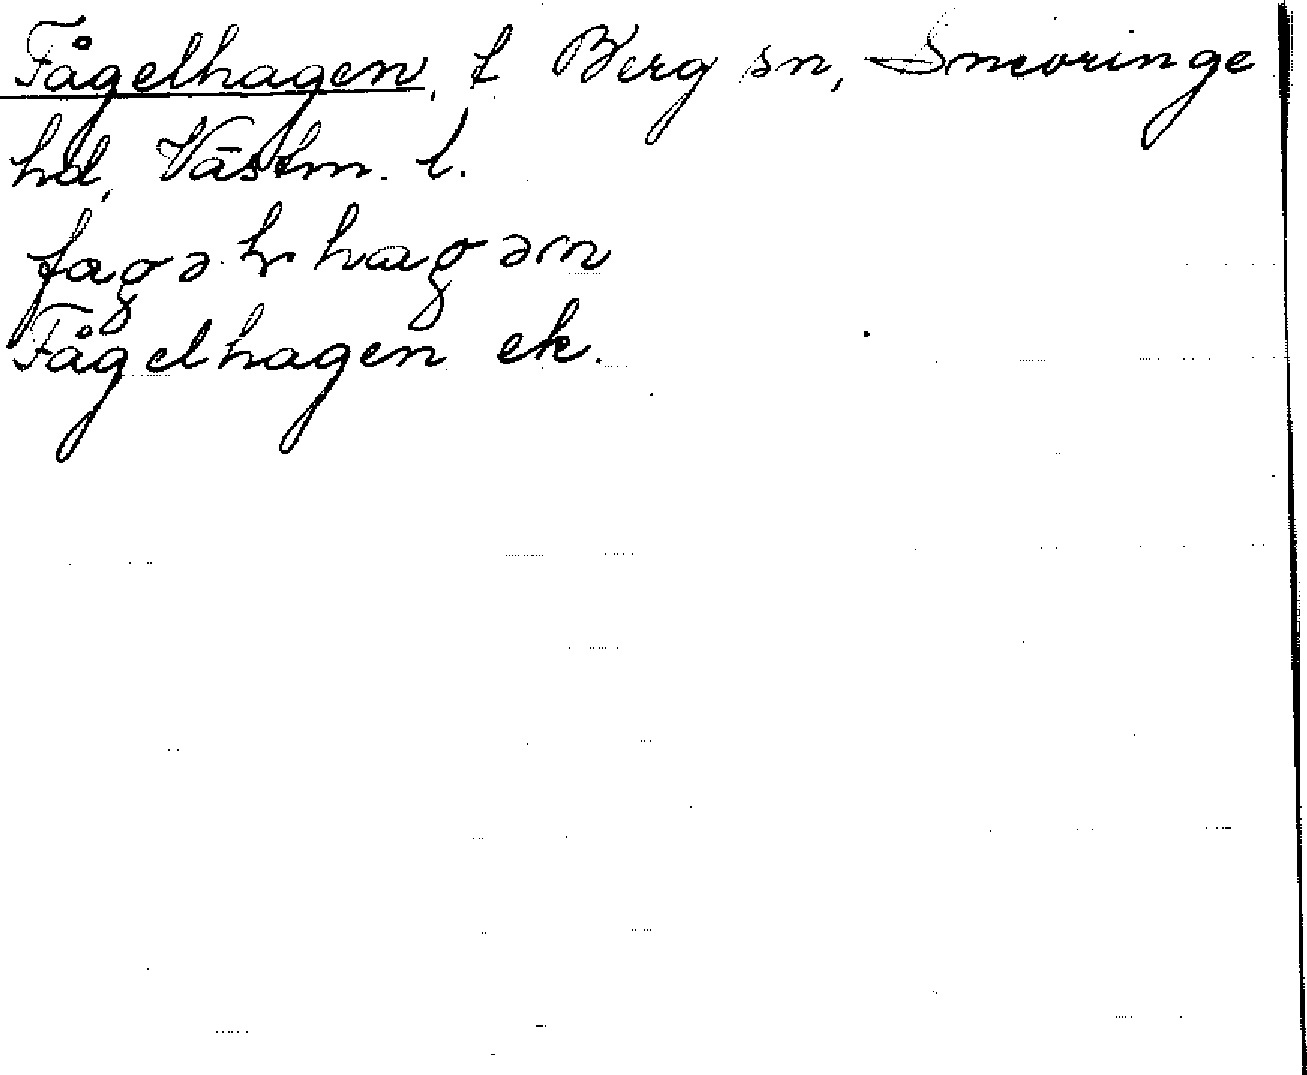 Fågelhagen, t Berg sn, Snevringe
hd, Västm. l.
Fågelhagen ek.